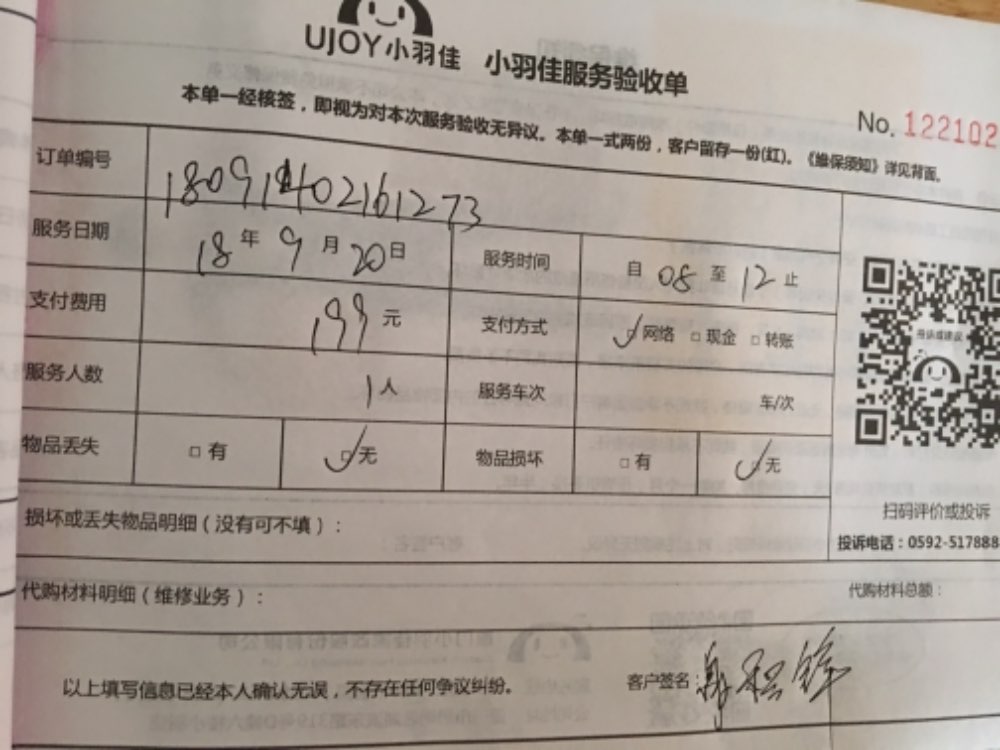 UJOY小羽佳 小羽佳服务验收单
本单一经核签，即视为对本次服务验收无异议。本单一式两份，客户留存一份(红)。《维保须知》详见背面。
No. 122102
订单编号 180914402161273
服务日期 18年9月20日 服务时间 自08至12止
支付费用 199元 支付方式 ☑网络 □现金 □转账
服务人数 1人 服务车次 车/次
物品丢失 □有 ☑无 物品损坏 □有 ☑无
损坏或丢失物品明细（没有可不填）：
扫码评价或投诉
投诉电话：0592-517888
代购材料明细（维修业务）： 代购材料总额：
以上填写信息已经本人确认无误，不存在任何争议纠纷。 客户签名：